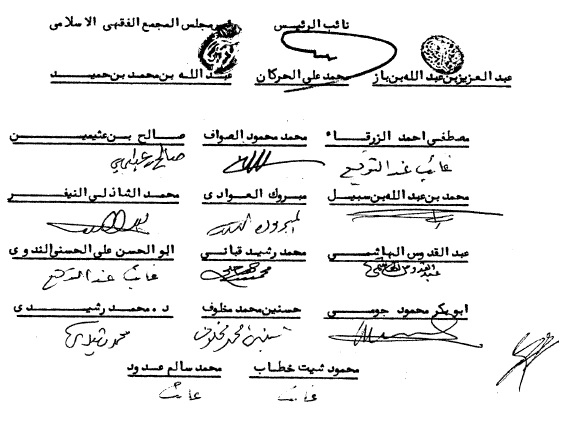 نائب الرئيس رئيس مجلس المجمع الفقهي الاسلامي
عبد العزيز بن عبد الله بن باز محمد علي الحركان عبد الله بن محمد بن حميد
مصطفى احمد الزرقاء محمد محمود الصواف صالح بن عثيمين
غائب عند التوقيع
محمد بن عبد الله بن سبيل مبروك العوادي محمد الشاذلي النيفر
عبد القدوس الهاشمي محمد رشيد قباني ابو الحسن علي الحسني الندوي
عبد القدوس الهاشمي غائب عند التوقيع
ابو بكر محمود جومي حسنين محمد مخلوف د. محمد رشيدي
حسنين محمد مخلوف محمد رشيدي
محمود شيت خطاب محمد سالم عدود
غائب غائب